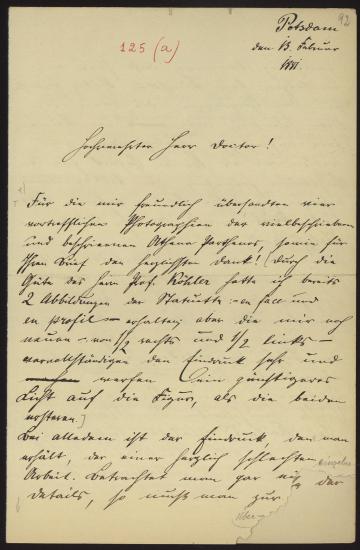 92
Potsdam
den 13. Februar
1881.
125 (a)
Hochverehrter Herr Doctor!
Für die mir freundlich übersandten vier
vortrefflichen Photographien der vielbeschriebenen
und beschrieenen Athena Parthenos, sowie für
Ihren Brief den herzlichsten Dank! [Durch die
Güte des Herrn Prof. Köhler hatte ich bereits
2 Abbildungen der Statuette – en face und
en profil – erhalten; aber die mir noch
neuen – von 1/2 rechts und 1/2 links –
vervollständigen den Eindruck sehr und
werfen ein günstigeres
Licht auf die Figur, als die beiden
ersteren.]
Bei alledem ist der Eindruck, den man
erhält, der einer herzlich schlechten
Arbeit. Betrachtet man gar die einzelnen
Details, so muß man zur